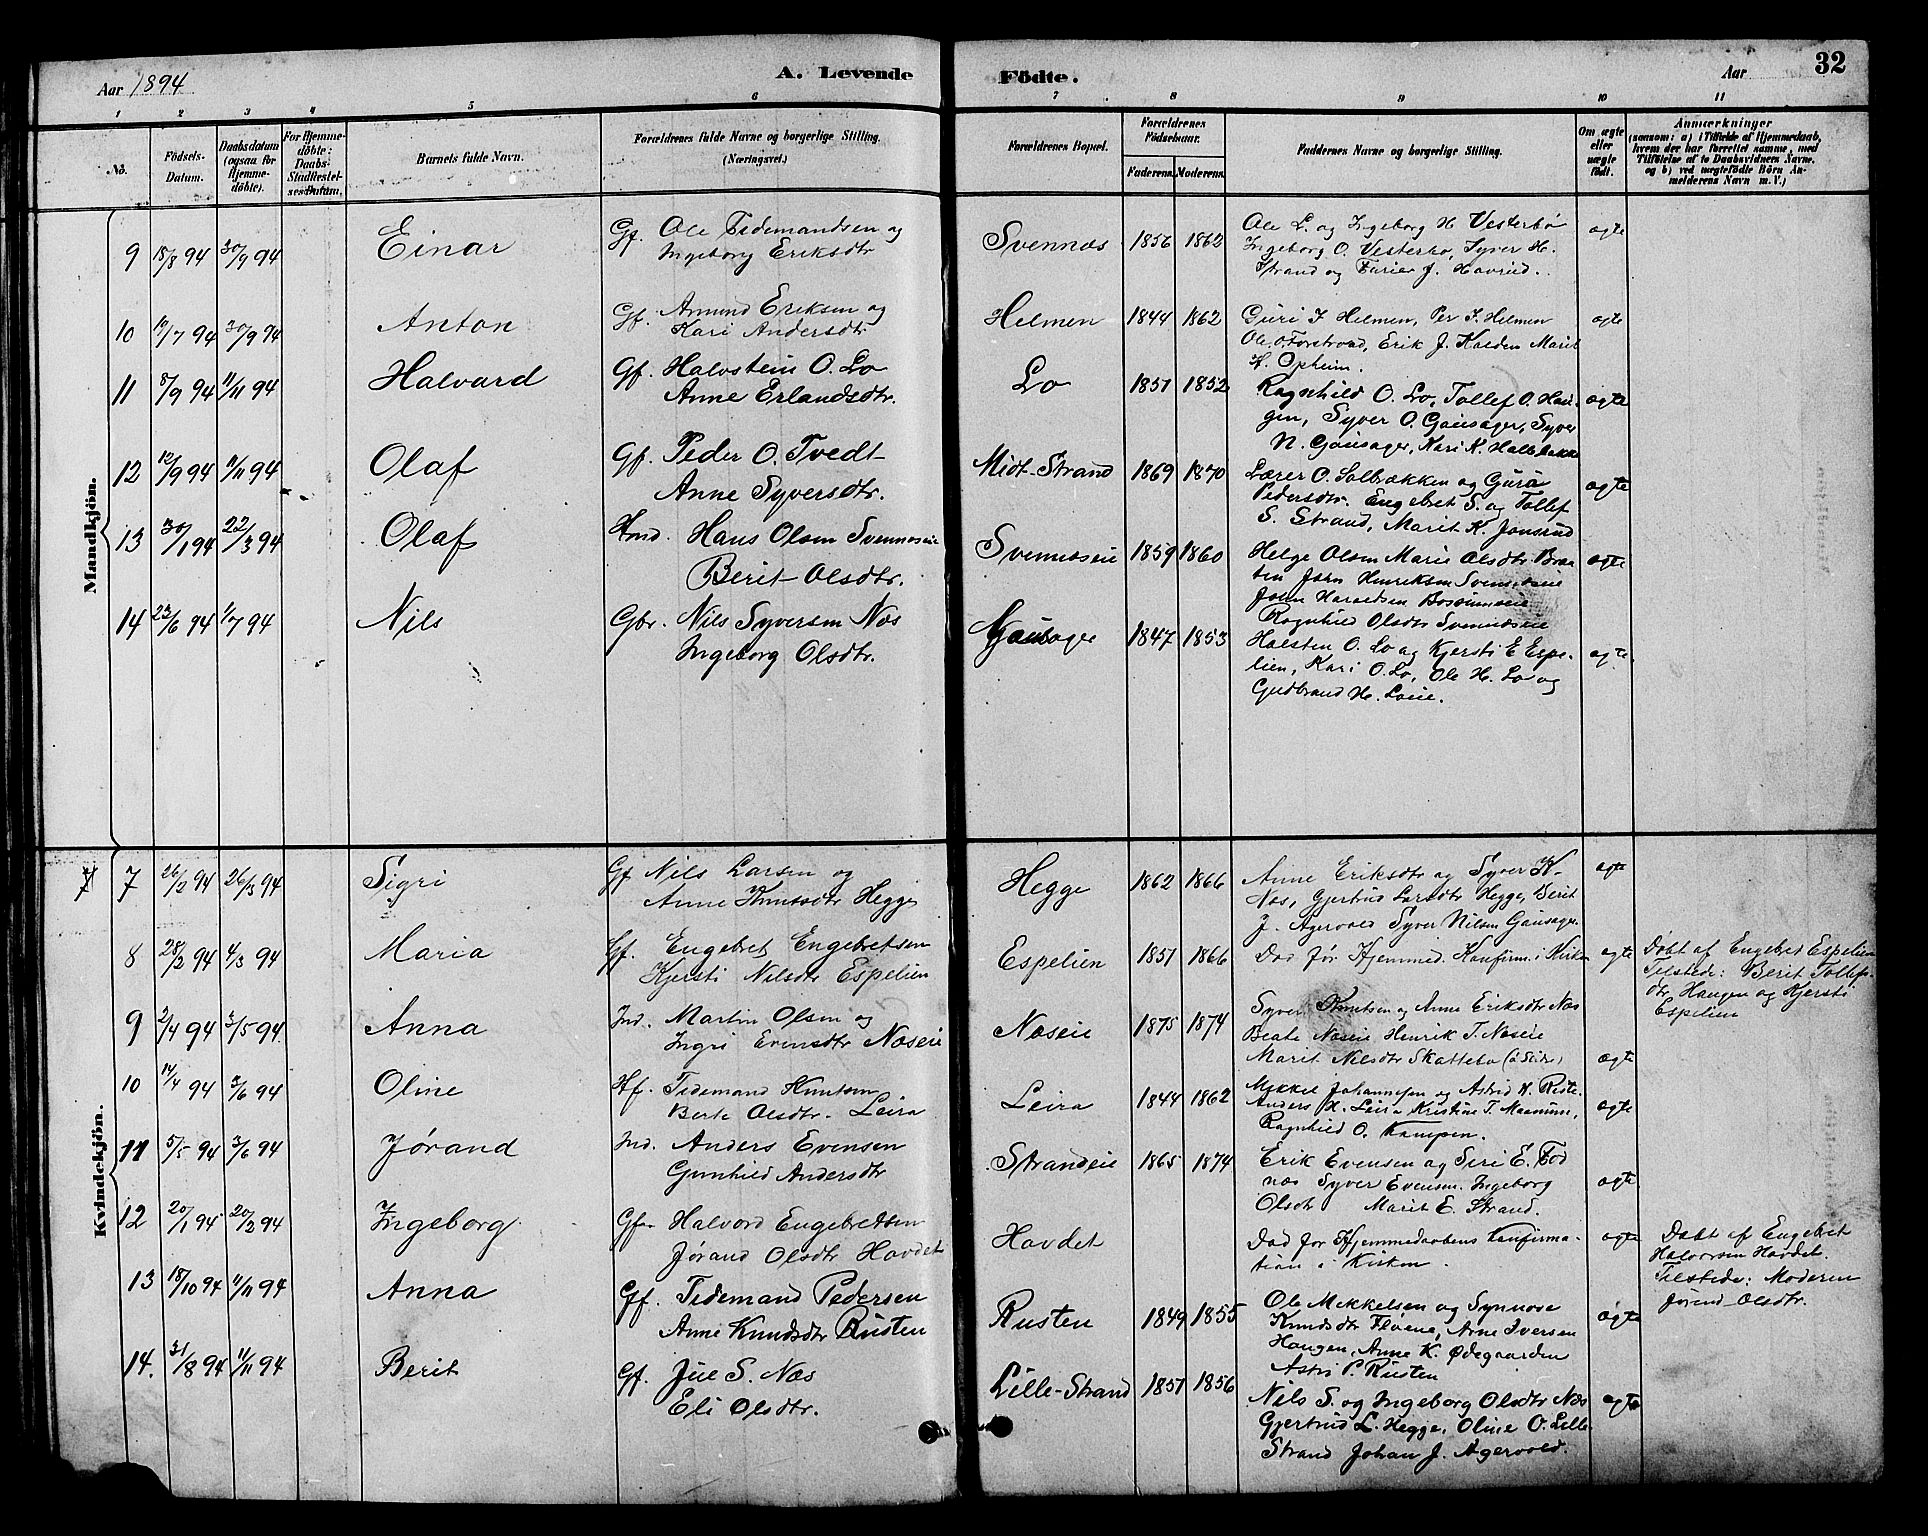 Aar 1894
A. Levende
Födte.
Aar
32
1 2 3 4 5 6 7 8 9 10 11
No.
Födsels-
Datum.
Daabsdatum
(ogsaa for
Hjemme-
döbte).
For Hjemme-
döbte:
Daabs-
Stadfæstel-
sesdatum.
Barnets fulde Navn.
Forældrenes fulde Navne og borgerlige Stilling.
(Næringsvei.)
Forældrenes Bopæl.
Forældrenes
Födselsaar.
Faderens. Moderens.
Faddernes Navne og borgerlige Stilling.
Om ægte
eller
uægte
födt.
Anmærkninger
(saasom: a) i Tilfælde af Hjemmedaab,
hvem der har forrettet samme, med
Tilföielse af to Daabsvidners Navne,
og b) ved uægtefödte Börn An-
melderens Navn m. V.)
Mandkjön.
9 18/8 94 30/9 94 Einar Gf. Ole Tidemandsen og
Ingeborg Eriksdtr
Svennæs 1856 1862 Ole L. og Ingeborg H. Vesterbø
Ingeborg O. Vesterbø, Syver H.
Strand og J. Havrud.
ægte
10 19/7 94 30/9 94 Anton Gf. Amund Eriksen og
Kari Andersdtr
Helmen 1844 1862 Guri I Helmen, Per I. Helmen
Ole O. Forstrand, Erik J. Kalden Marit
K. Opheim.
ægte
11 8/9 94 11/11 94 Halvard Gf. Halvstein O. Lo
Anne Erlandsdtr.
Lo 1851 1852 Ragnhild O. Lo, Tollef O. Hau-
gen, Syver O. Gausager, Syver
N. Gausager, Kari K. Halbakke
ægte
12 12/9 94 11/11 94 Olaf Gf. Peder O. Tvedt
Anne Syversdtr.
Midt-Strand 1869 1870 Lærer O. Solbrækken og Guri
Pedersdtr. Engebret S. og Tollef
S. Strand, Marit K. Jonsrud
ægte
13 30/1 94 22/3 94 Olaf Hmd. Hans Olsen Svennæseie
Berit Olsdtr.
Svennæseie 1859 1860 Helge Olsen Marie Olsdtr. Braa-
ten John Henriksen Svennæseie
John Haraldsen
Ragnhild Olsdtr Svennæseie
ægte
14 23/6 94 1/7 94 Nils Gbr. Nils Syversen Næs
Ingeborg Olsdtr.
Gausager 1847 1853 Halsten O. Lo og Kjersti E Espe-
lien, Kari O. Lo, Ole H. Lo og
Gudbrand H. Loeie.
ægte
Kvindekjön.
7 7 26/2 94 26/3 94 Sigri Gf. Nils Larsen og
Anne Knutsdtr Hegge
Hegge 1862 1866 Anne Eriksdtr og Syver K.
Næs, Gjertrud Larsdtr Hegge, Berit
J. Agervold Syver Nilsen Gausager
ægte
8 28/2 94 4/3 94 Maria Gf. Engebret Engebretsen
Kjersti Nilsdtr Espelien
Espelien 1851 1866 Død før Hjemmed. Konfirm. i Kirken
ægte Døbt af Engebret Espelien
Tilstede: Berit Tollefs-
dtr. Haugen og Kjersti
Espelien
9 2/4 94 3/5 94 Anna Ind. Martin Olsen og
Ingri Evensdtr Næseie
Næseie 1875 1874 Syver Knutsen og Anne Eriksdtr Næs
Beate Næseie Henrik T. Næseie
Marit Nilsdtr Skattebo (Ø. Slidre)
ægte
10 14/4 94 3/6 94 Oline Hf. Tidemand Knutsen
Berte Olsdtr. Leira
Leira 1844 1862 Mikkel Johannesen og Astrid K. Riste
Anders K. Leira Kristine T.
Ragnhild O. Kampen.
ægte
11 5/5 94 3/6 94 Jørand Ind. Anders Evensen
Gunhild Andersdtr
Strandeie 1865 1874 Erik Evensen og Siri E. Fod
næs Syver Evensen. Ingeborg
Olsdtr Marit E. Strand.
ægte
12 20/1 94 20/2 94 Ingeborg Gf. Halvord Engebretsen
Jørand Olsdtr Hovdet
Hovdet Død før Hjemmedaabens Konfirma-
tion i Kirken.
ægte Døbt af Engebret
Halvorsen Hovdet.
Tilstede: Moderen
Jørand Olsdtr.
13 18/10 94 11/11 94 Anna Gf. Tidemand Pedersen
Anne Knudsdtr Rusten
Rusten 1849 1855 Ole Mikkelsen og Synnøve
Knudsdtr Fløene, Arne Iversen
Haugen, Anne K. Ødegaarden
Astri P. Rusten
ægte
14. 31/8 94 11/11 94 Berit Gf. Jul S. Næs
Eli Olsdtr.
Lille-Strand 1851 1856 Nils S. og Ingeborg Olsdtr Næs
Gjertrud L. Hegge, Oline O. Lille-
Strand Johan J. Agervold.
ægte